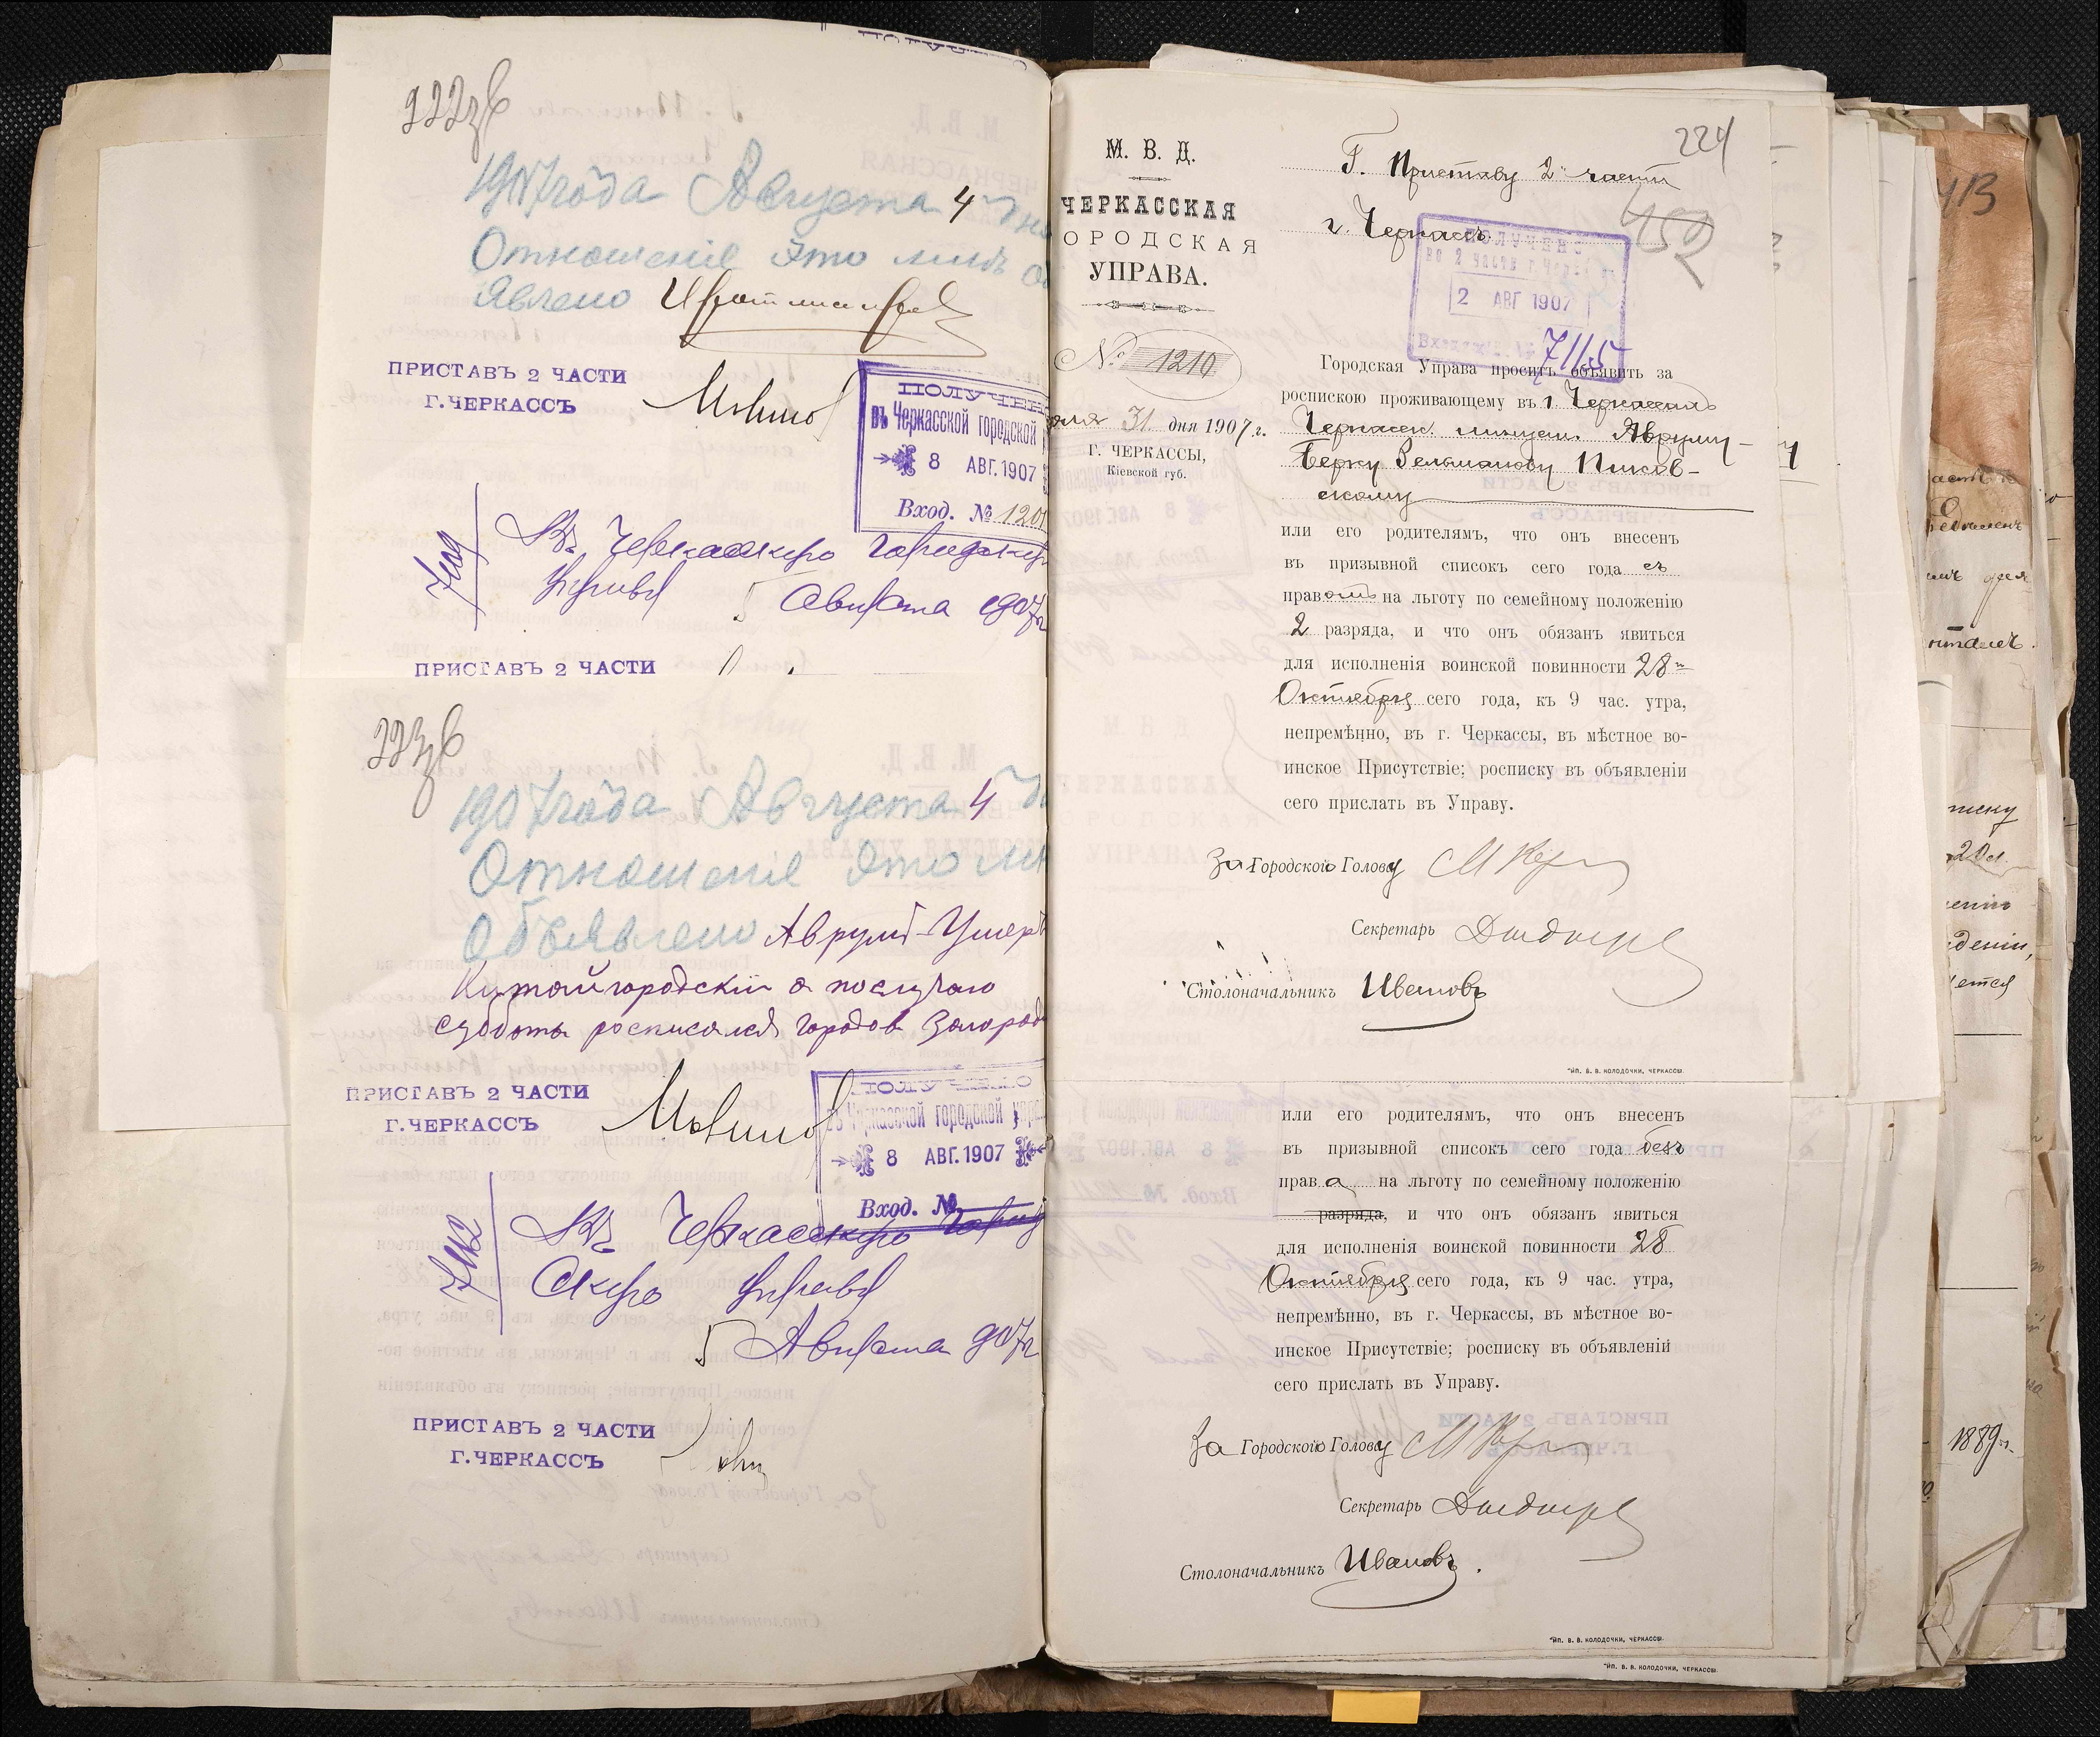 222 зв
1907 года Августа 4 дня
Отношеніе это мнѣ
явлено
ПРИСТАВЪ 2 ЧАСТИ
Г. ЧЕРКАССЪ
ПОЛУЧЕН
въ Черкасской городской
8 АВГ. 1907
Вход. № 120
Въ Черкасскую Городскую
Управу
5 Августа 1907 г
ПРИСТАВЪ 2 ЧАСТИ
223 зв
1907 года Августа 4
Отношеніе это мн
Объявлено Аврумъ-Ушеръ
Китайгородскій а по случаю
субботы росписался городов
ПРИСТАВЪ 2 ЧАСТИ
Г. ЧЕРКАССЪ
ПОЛУЧЕНО
въ Черкасской городской упра
8 АВГ. 1907
Вход. №
Въ Черкасскую Город
скую Управу
5 Августа 907 г
ПРИСТАВЪ 2 ЧАСТИ
Г. ЧЕРКАССЪ
224
М. В. Д.
ЧЕРКАССКАЯ
ОРОДСКАЯ
УПРАВА.
№ 1210
юля 31 дня 1907 г.
Г. ЧЕРКАССЫ,
Кіевской губ.
Г. Приставу 2й части
г. Черкассъ
452
ПОЛУЧЕНО
во 2 части г. Черк
2 АВГ 1907
7115
Городская Управа проситъ объявить за
роспискою проживающему въ г. Черкассахъ
Черкасск. мѣщан. Аврумъ-
Берку Зельманову Пиков-
скому
или его родителямъ, что онъ внесенъ
въ призывной списокъ сего года съ
правомъ на льготу по семейному положенію
2 разряда, и что онъ обязанъ явиться
для исполненія воинской повинности 28го
Октября сего года, къ 9 час. утра,
непремѣнно, въ г. Черкассы, въ мѣстное во-
инское Присутствіе; росписку въ объявленіи
сего прислать въ Управу.
За Городского Голову
Секретарь
Столоначальникъ Ивановъ
Тип. В. В. КОЛОДОЧКИ, ЧЕРКАССЫ.
или его родителямъ, что онъ внесенъ
въ призывной списокъ сего года безъ
права на льготу по семейному положенію
разряда, и что онъ обязанъ явиться
для исполненія воинской повинности 28
Октября сего года, къ 9 час. утра,
непремѣнно, въ г. Черкассы, въ мѣстное во-
инское Присутствіе; росписку въ объявленій
сего прислать въ Управу.
За Городского Голову
Секретарь
Столоначальникъ Ивановъ.
Тип. В. В. КОЛОДОЧКИ, ЧЕРКАССЫ.
Тип. В. В. КОЛОДОЧКИ, ЧЕРКАССЫ.
413
1889 г.